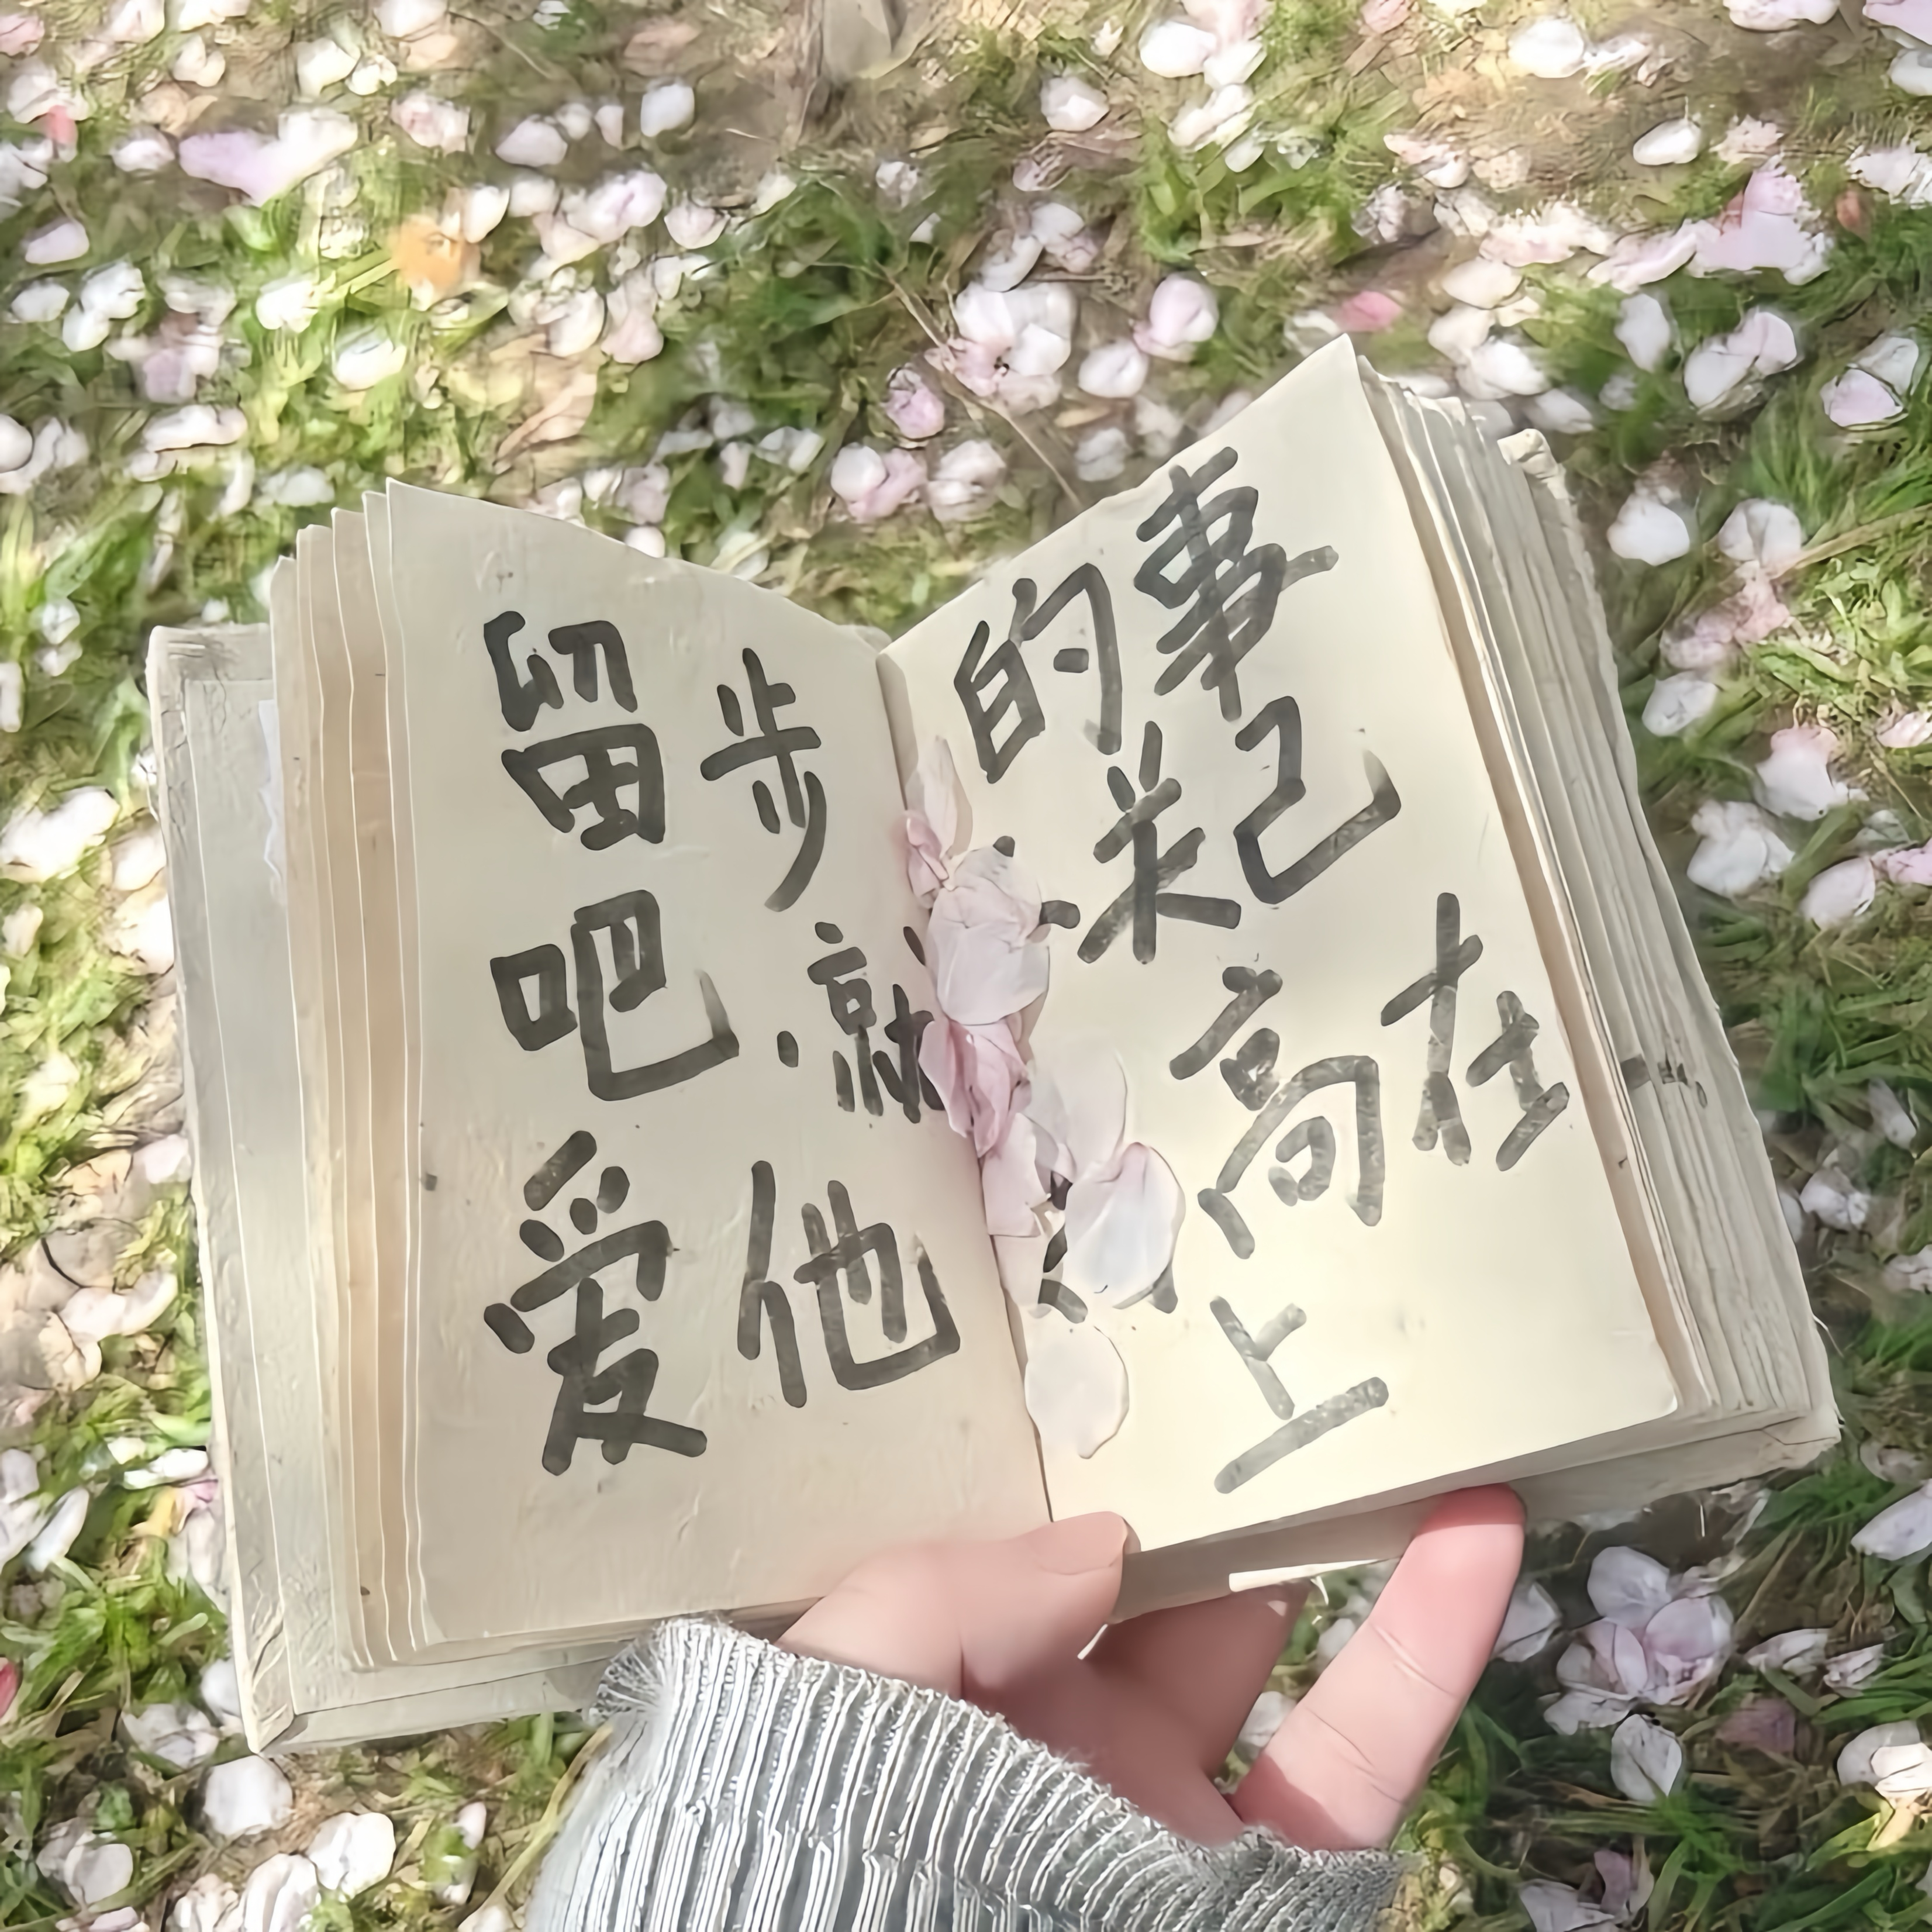 事己在
的米高上
步就他
留吧爱